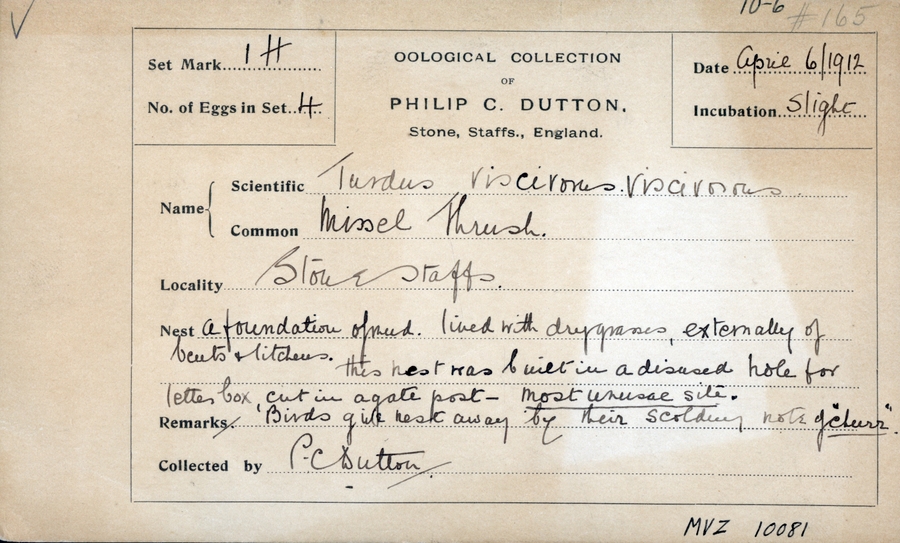 10-6 #165
Set Mark 1 H
No. of Eggs in Set 4
OOLOGICAL COLLECTION
OF
PHILIP C. DUTTON,
Stone, Staffs., England.
Date April 6/1912
Incubation Slight
Name
Scientific Turdus viscivorus. viscivorous
Common Missel Thrush.
Locality Stone Staffs.
Nest a foundation of mud. lived with dry grasses, externally of
bents & litchens. This nest was built in a disused hole for
letter box, cut in a gate post – most unusae site.
Remarks Birds give nest away by their scolding note of "churr".
Collected by P.C Dutton
MVZ 10081